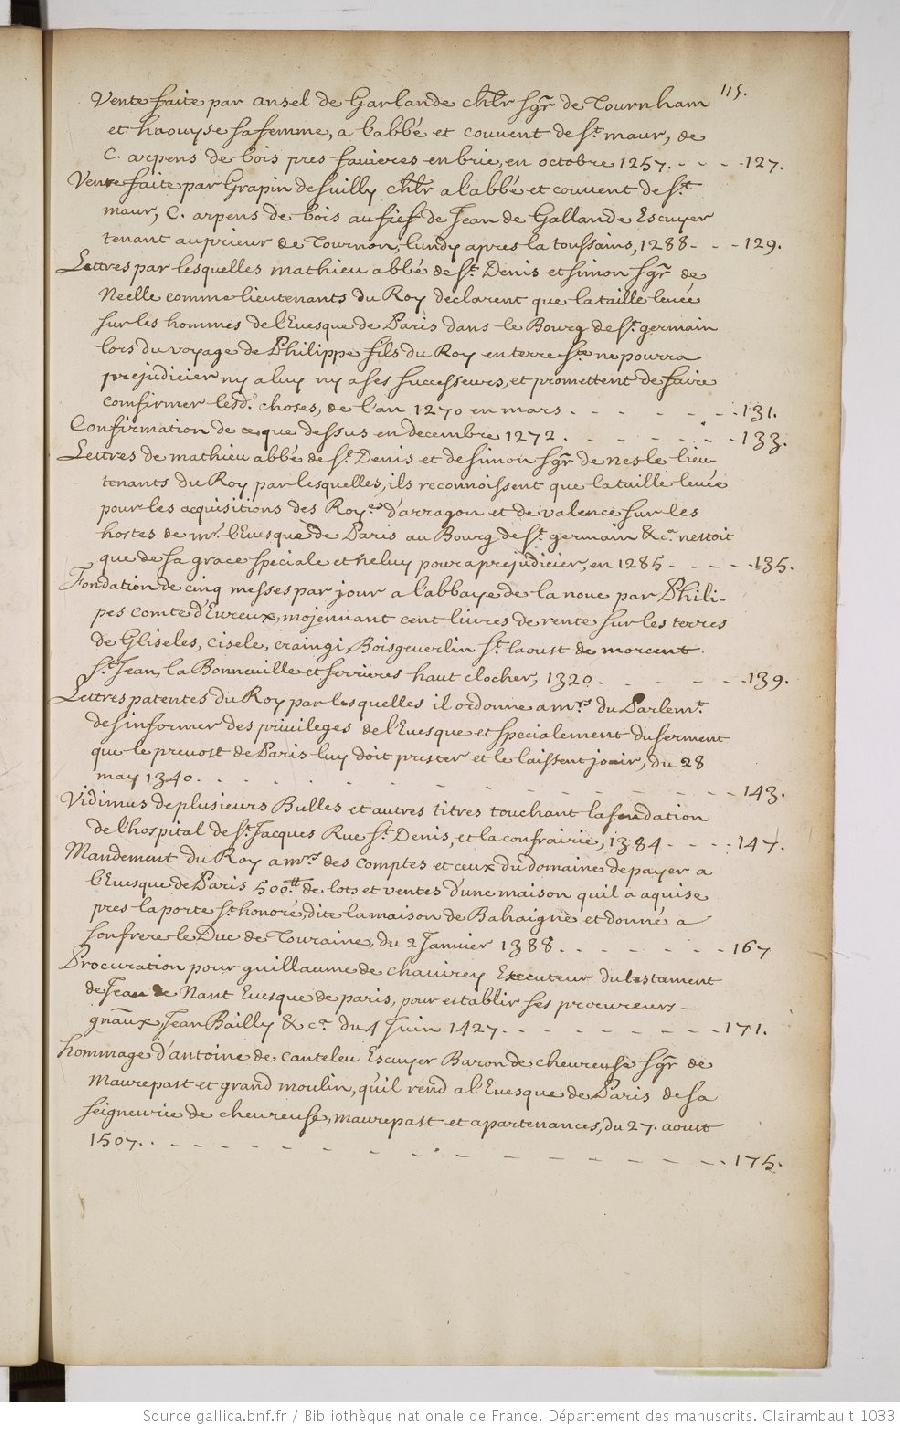 115.
Vente faite par ansel de Garlande chlr sgr de Tournham
et haouyse sa femme, a l'abbé et couvent de st. maur, de
C. arpens de bois pres favieres en brie, en octobre 1257. - - - 127.
Vente faite par Grapin de suilly chlr a l'abbé et couvent de st.
maur, C. arpens de bois au fief de Jean de Gallande Escuyer
tenant au prieur de Tournon, lundy apres la toussains, 1288 - - - 129.
Lettres par lesquelles mathieu abbé de st. Denis et simon sgr de
Neelle comme lieutenants du Roy declarent que la taille levée
sur les hommes de l'Evesque de Paris dans le Bourg de st. germain
lors du voyage de Philippe fils du Roy en terre ste ne pourra
prejudicier ny a luy ny a ses successeurs, et promettent de faire
confirmer lesd. choses, de l'an 1270 en mars. - - - - - - 131.
Confirmation de ce que dessus en decembre 1272. - - - - - - 133.
Lettres de mathieu abbé de st. Denis et de simon sgr de nesle lieu-
tenants du Roy par lesquelles, ils reconnoissent que la taille levée
pour les acquisitions des Roy.es d'arragon et de valence sur les
hostes de mr. l'Evesque de Paris au Bourg de st. germain &ca. n'estoit
que de sa grace speciale et ne luy pourra prejudicier, en 1285 - - - - 135.
Fondation de cinq messes par jour a l'abbaye de la noue par Phili-
pes comte d'Evreux, mojennant cent livres de rente sur les terres
de Gliseles, Cisele, craingi, Boisgeverlin st. laoust de morcent.
st. Jean, la Bonneville et ferrieres haut clocher, 1320 - - - - - 139.
Lettres patentes du Roy par lesquelles il ordonne a mrs. du Parlemt.
de s'informer des privileges de l'Evesque et specialement du serment
que le prevost de Paris luy doit prester et le laissent jouir, du 28
may 1340. - - - - - - - - - - - 143.
Vidimus de plusieurs Bulles et autres titres touchant la fondation
de l'hospital de st. Jacques Rue st. Denis, et la confrairie, 1384 - - - 147.
Mandement du Roy a mrs. des comptes et ceux du domaine de payer a
l'Evesque de Paris 500tt. de lots et ventes d'une maison qu'il a aquise
pres la porte st honoré, dite la maison de Bahaigne et donné a
son frere le Duc de Touraine, du 2 Janvier 1388. - - - - - - 167
Procuration pour guillaume de chauirey Executeur du testament
de Jean de Nant Evesque de paris, pour establir ses procureurs-
gnaux, Jean Bailly &ca. du 4 Juin 1427. - - - - - - - 171.
hommage d'antoine de canteleu Escuyer Baron de chevreuse sgr de
Maurepast et grand moulin, qu'il rend a l'Evesque de Paris de sa
seigneurie de chevreuse, maurepast et apartenances, du 27. aoust
1507. - - - - - - - - - - - - - - 175.
Source gallica.bnf.fr / Bibliothèque nationale de France. Département des manuscrits. Clairambault 1033